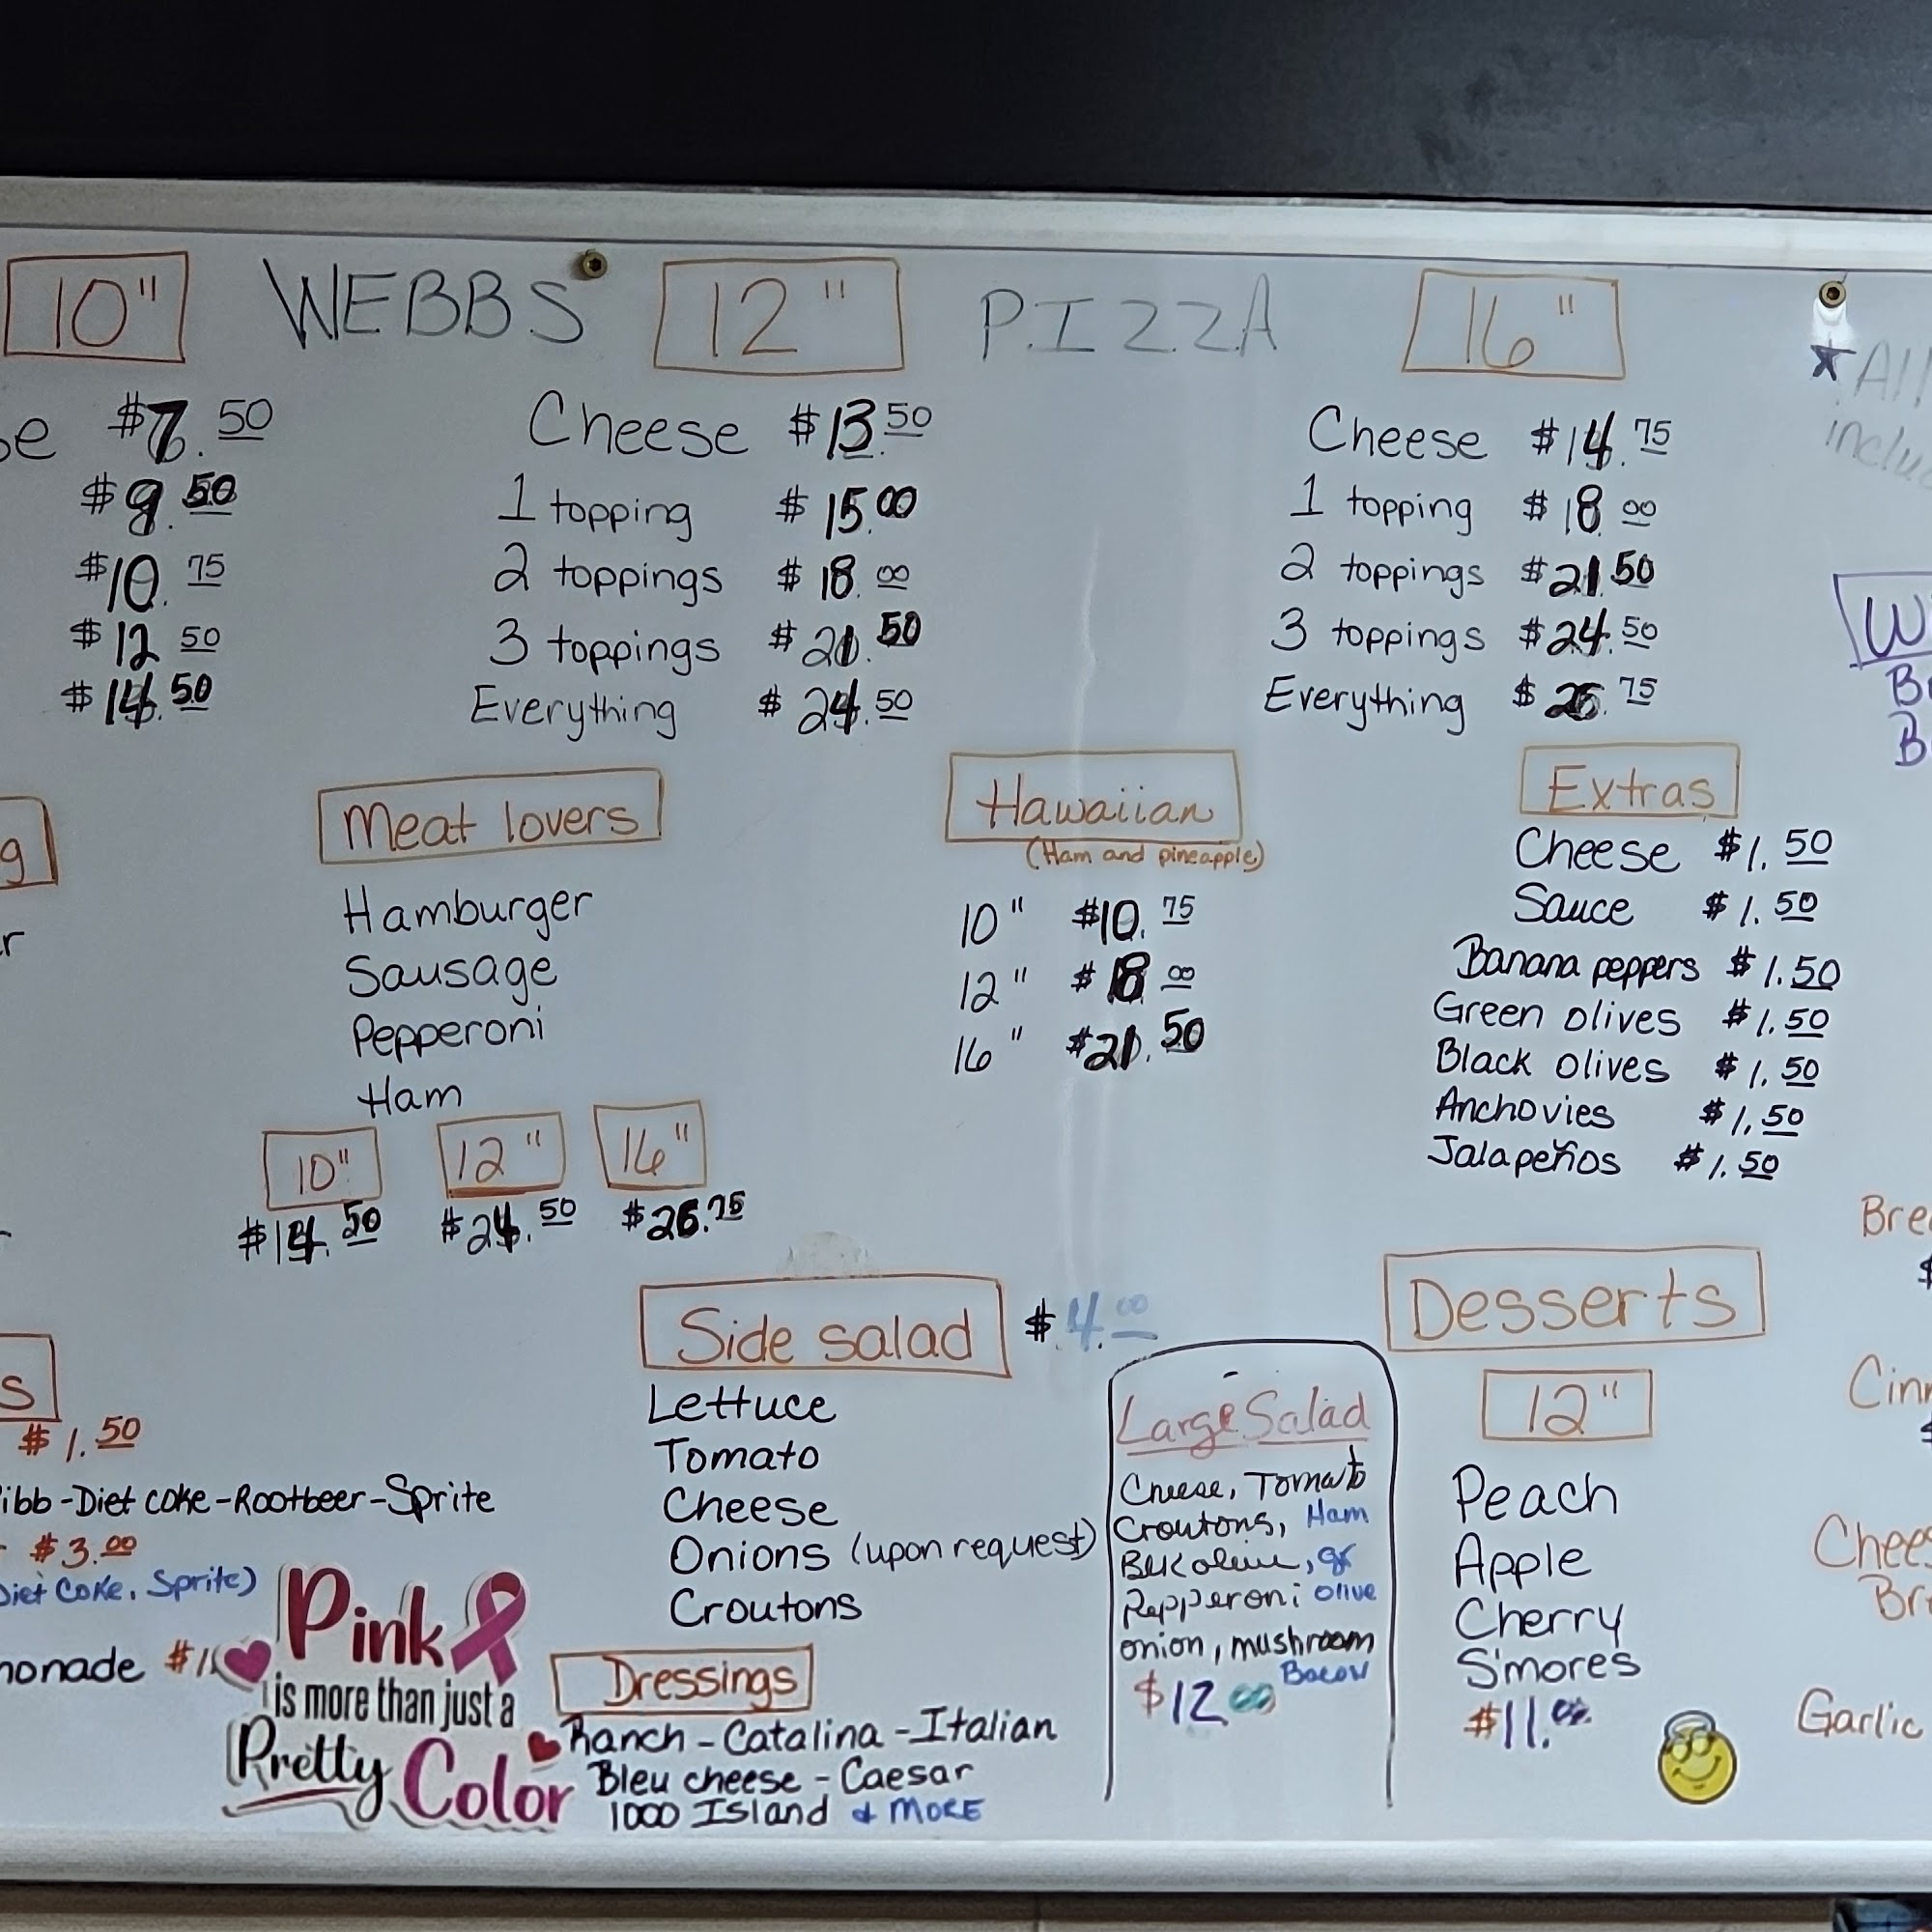 10" WEBBS 12" PIZZA 16"
$7.50
$9.50
$10.75
$12 50
$14.50
Cheese $13.50
1 topping $15.00
2 toppings $18.00
3 toppings $21.50
Everything $24.50
Cheese $14.75
1 topping $18 00
2 toppings $21.50
3 toppings $24.50
Everything $26.75
Meat lovers
Hamburger
Sausage
Pepperoni
Ham
10" 12" 16"
$14.50 $24.50 $26.75
Hawaiian
(Ham and pineapple)
10" $10.75
12" $18 00
16" $21.50
Extras
Cheese $1.50
Sauce $1.50
Banana peppers $1.50
Green olives $1.50
Black olives $1.50
Anchovies $1.50
Jalapeños $1.50
$1.50
-Diet coke-Rootbeer-Sprite
$3.00
Diet Coke, Sprite)
Pink
is more than just a
Pretty Color
Side salad $4.00
Lettuce
Tomato
Cheese
Onions (upon request)
Croutons
Dressings
Ranch - Catalina - Italian
Bleu cheese - Caesar
1000 Island & MORE
Large Salad
Cheese, Tomato
Croutons, Ham
Blk olive, gr
Pepperoni olive
onion, mushroom
Bacon
$12 00
Desserts
12"
Peach
Apple
Cherry
S'mores
$11.00
Garlic